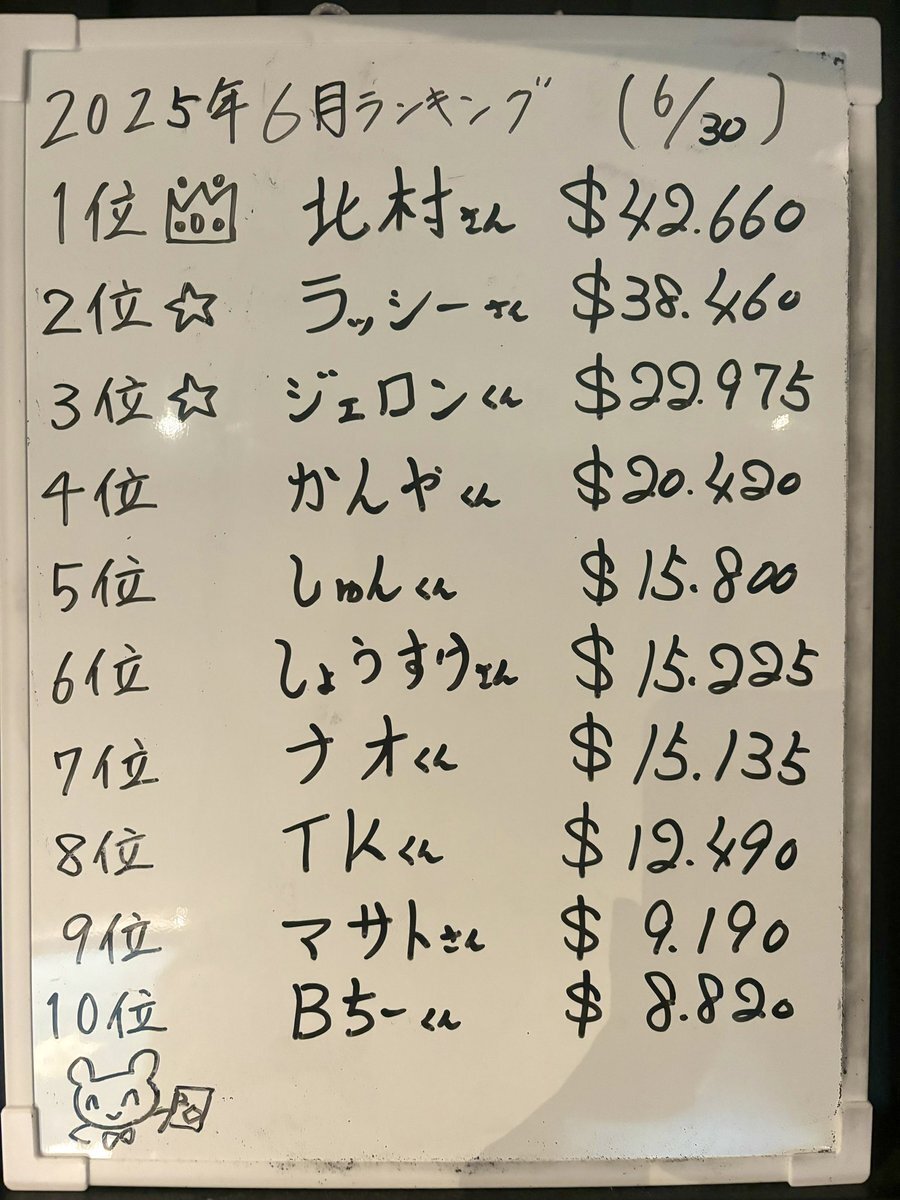 2025年6月ランキング (6/30)
1位 北村さん $42.660
2位 ☆ ラッシーさん $38.460
3位 ☆ ジェロンくん $22.975
4位 かんやくん $20.420
5位 しゅんくん $15.800
6位 しょうすけさん $15.225
7位 ナオくん $15.135
8位 TKくん $12.490
9位 マサトさん $9.190
10位 Bちーくん $8.820